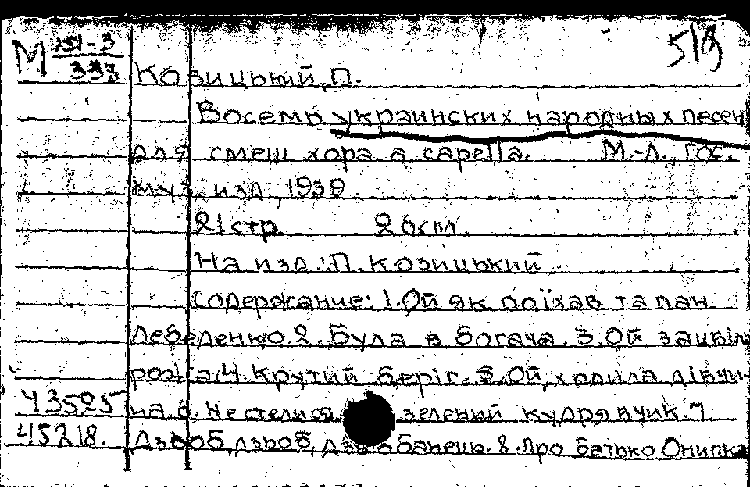 М 151-3 / 333
513
Козицький, П.
Восемь украинских народных песен
для смеш хора a capella. М.-Л., Гос.
муз. изд, 1939.
21 стр.
На изд.: П. Козицький
Содержание: 1. Ой як поїхав та пан
Лебеденко. 2. Була в богача. 3. Ой зацвіла
рожа. 4. Крутий беріг. 5. Ой, ходила дівчи-
43525 на. 6. Не стелися зелений кудрявчик. 7
45218. Дзвоб, дзвоб, 8. Про батько Онилка